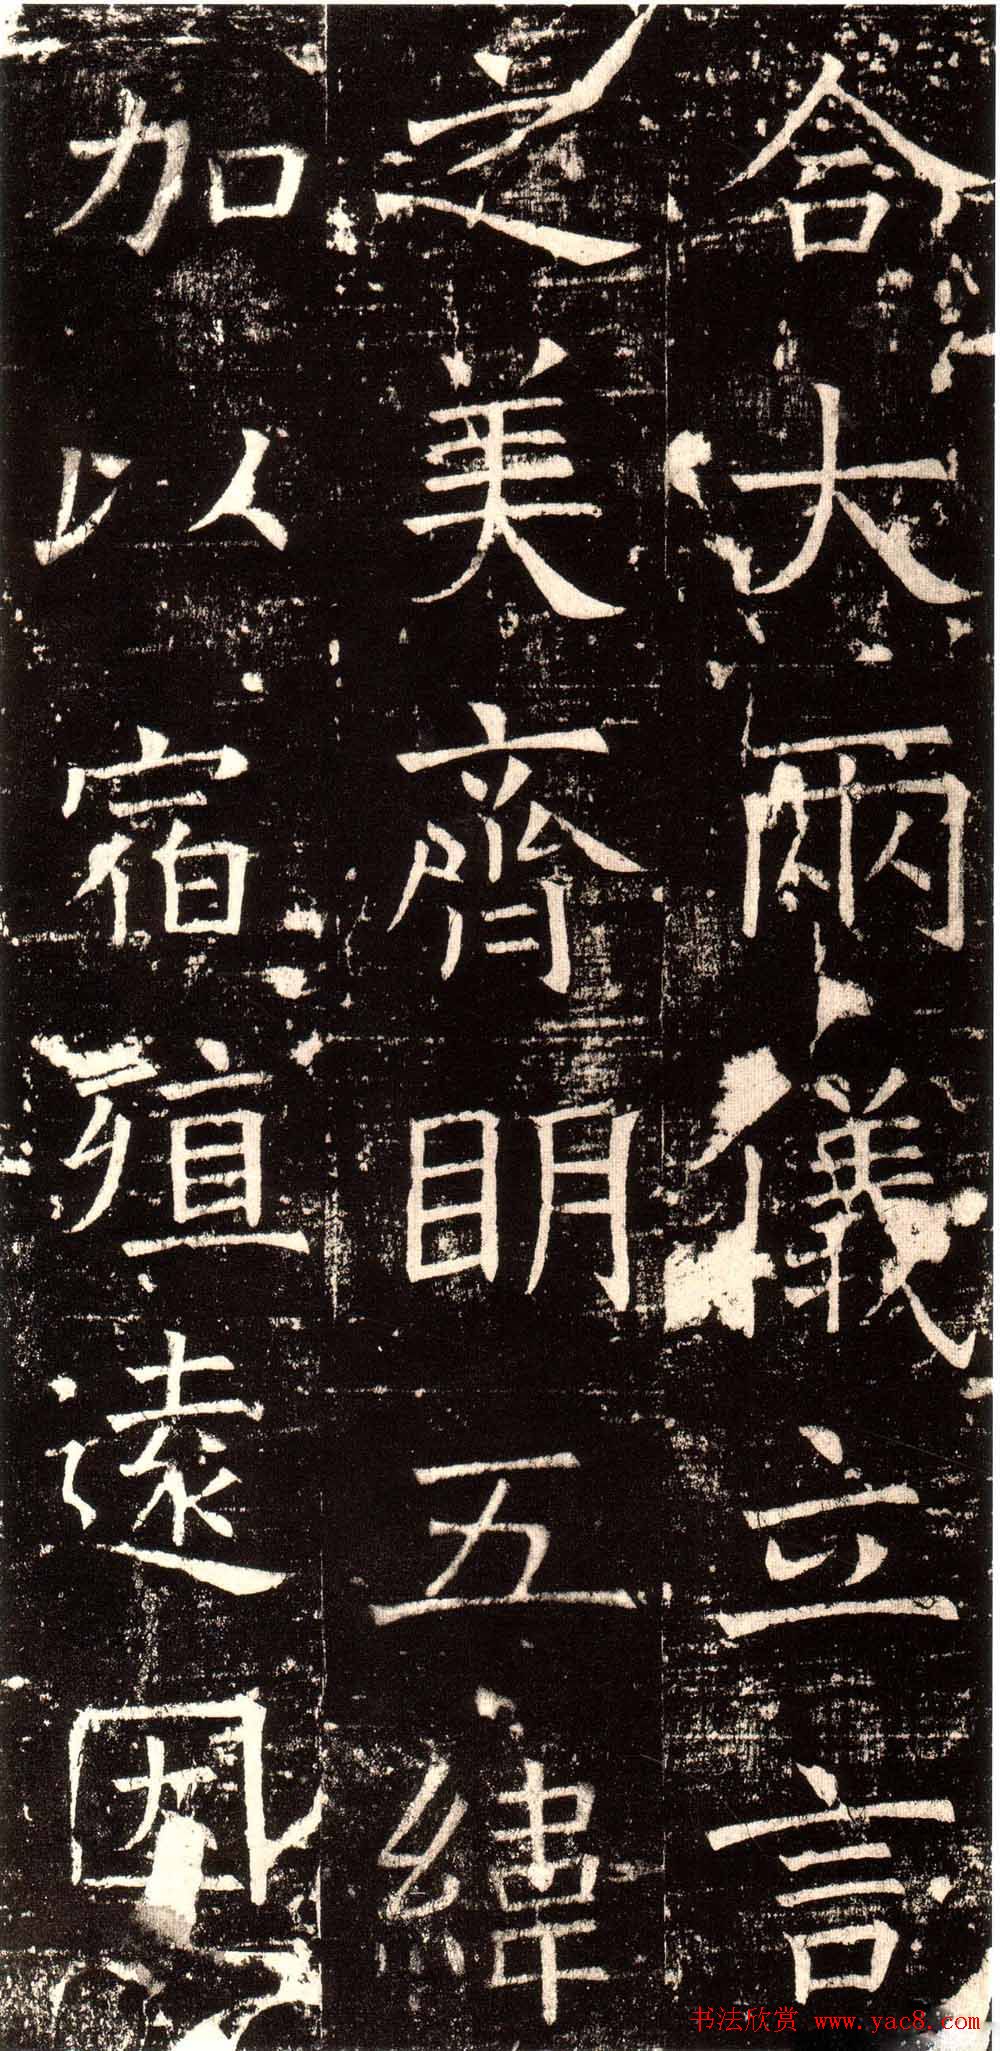 合大兩儀立言
之美齊眀五緯
加以宿殖遠因
书法欣赏 www.yac8.com